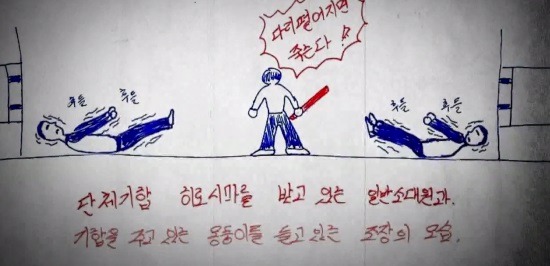 다리떨어지면
죽는다 !
후들 후들
후들 후들
단체기합 히로시마를 받고 있는 일반소대원과.
기합을 주고 있는 몽둥이를 들고 있는 조장의 모습.